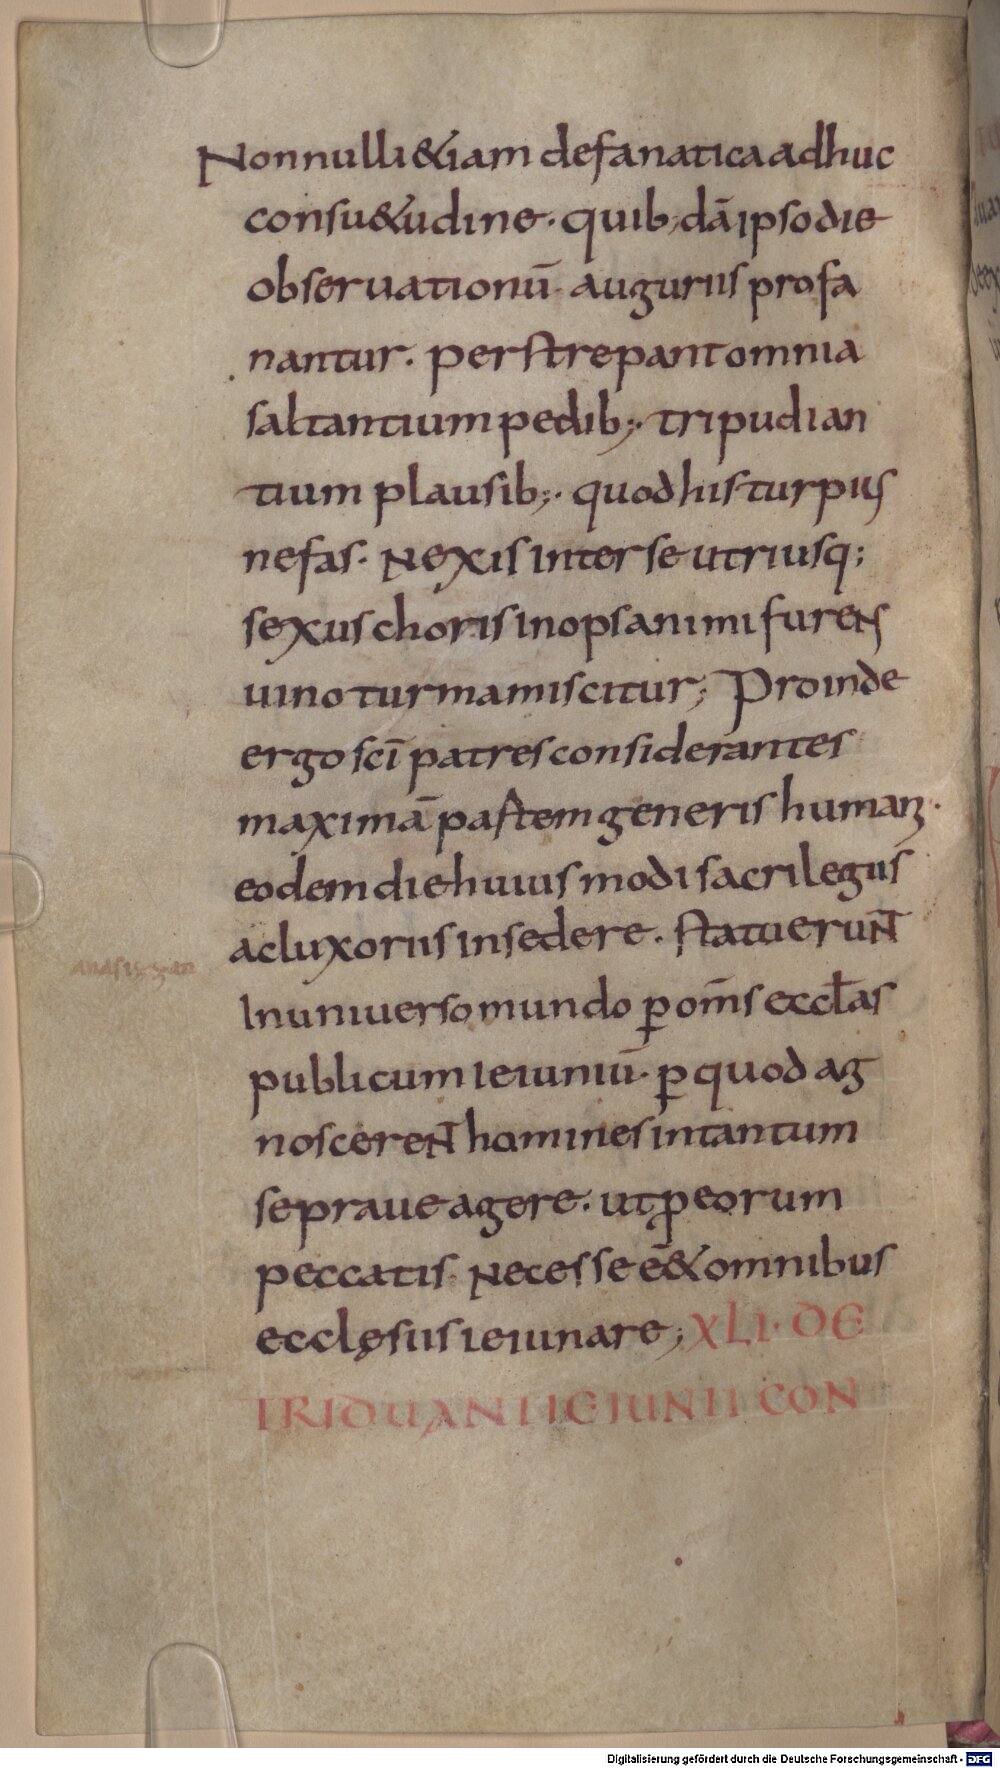 Nonnulli &iam de fanatica adhuc
consu&udine· quib; dā ipso die
obseruationū· auguriis profa
nantur· perstrepant omnia
saltantium pedib;· tripudian
tium plausib;· quod his turpius
nefas· Nexis inter se utriusq;
sexus choris inops animi furens
uino turma miscitur; Proinde
ergo scī patres considerantes
maximā partem generis humani·
eodem die huiusmodi sacrilegiis
ac luxoriis insedere· statuerunt̄
In uniuerso mundo ꝑ om̄s eccłas
publicum ieiuniū· ꝑ quod ag
noscerent̄ homines intantum
se praue agere· ut ꝑ eorum
peccatis· Necesse ē & omnibus
ecclęsiis ieiunare; XLI· DE
TRIDUANI IEIUNII CON
Digitalisierung gefördert durch die Deutsche Forschungsgemeinschaft - DFG